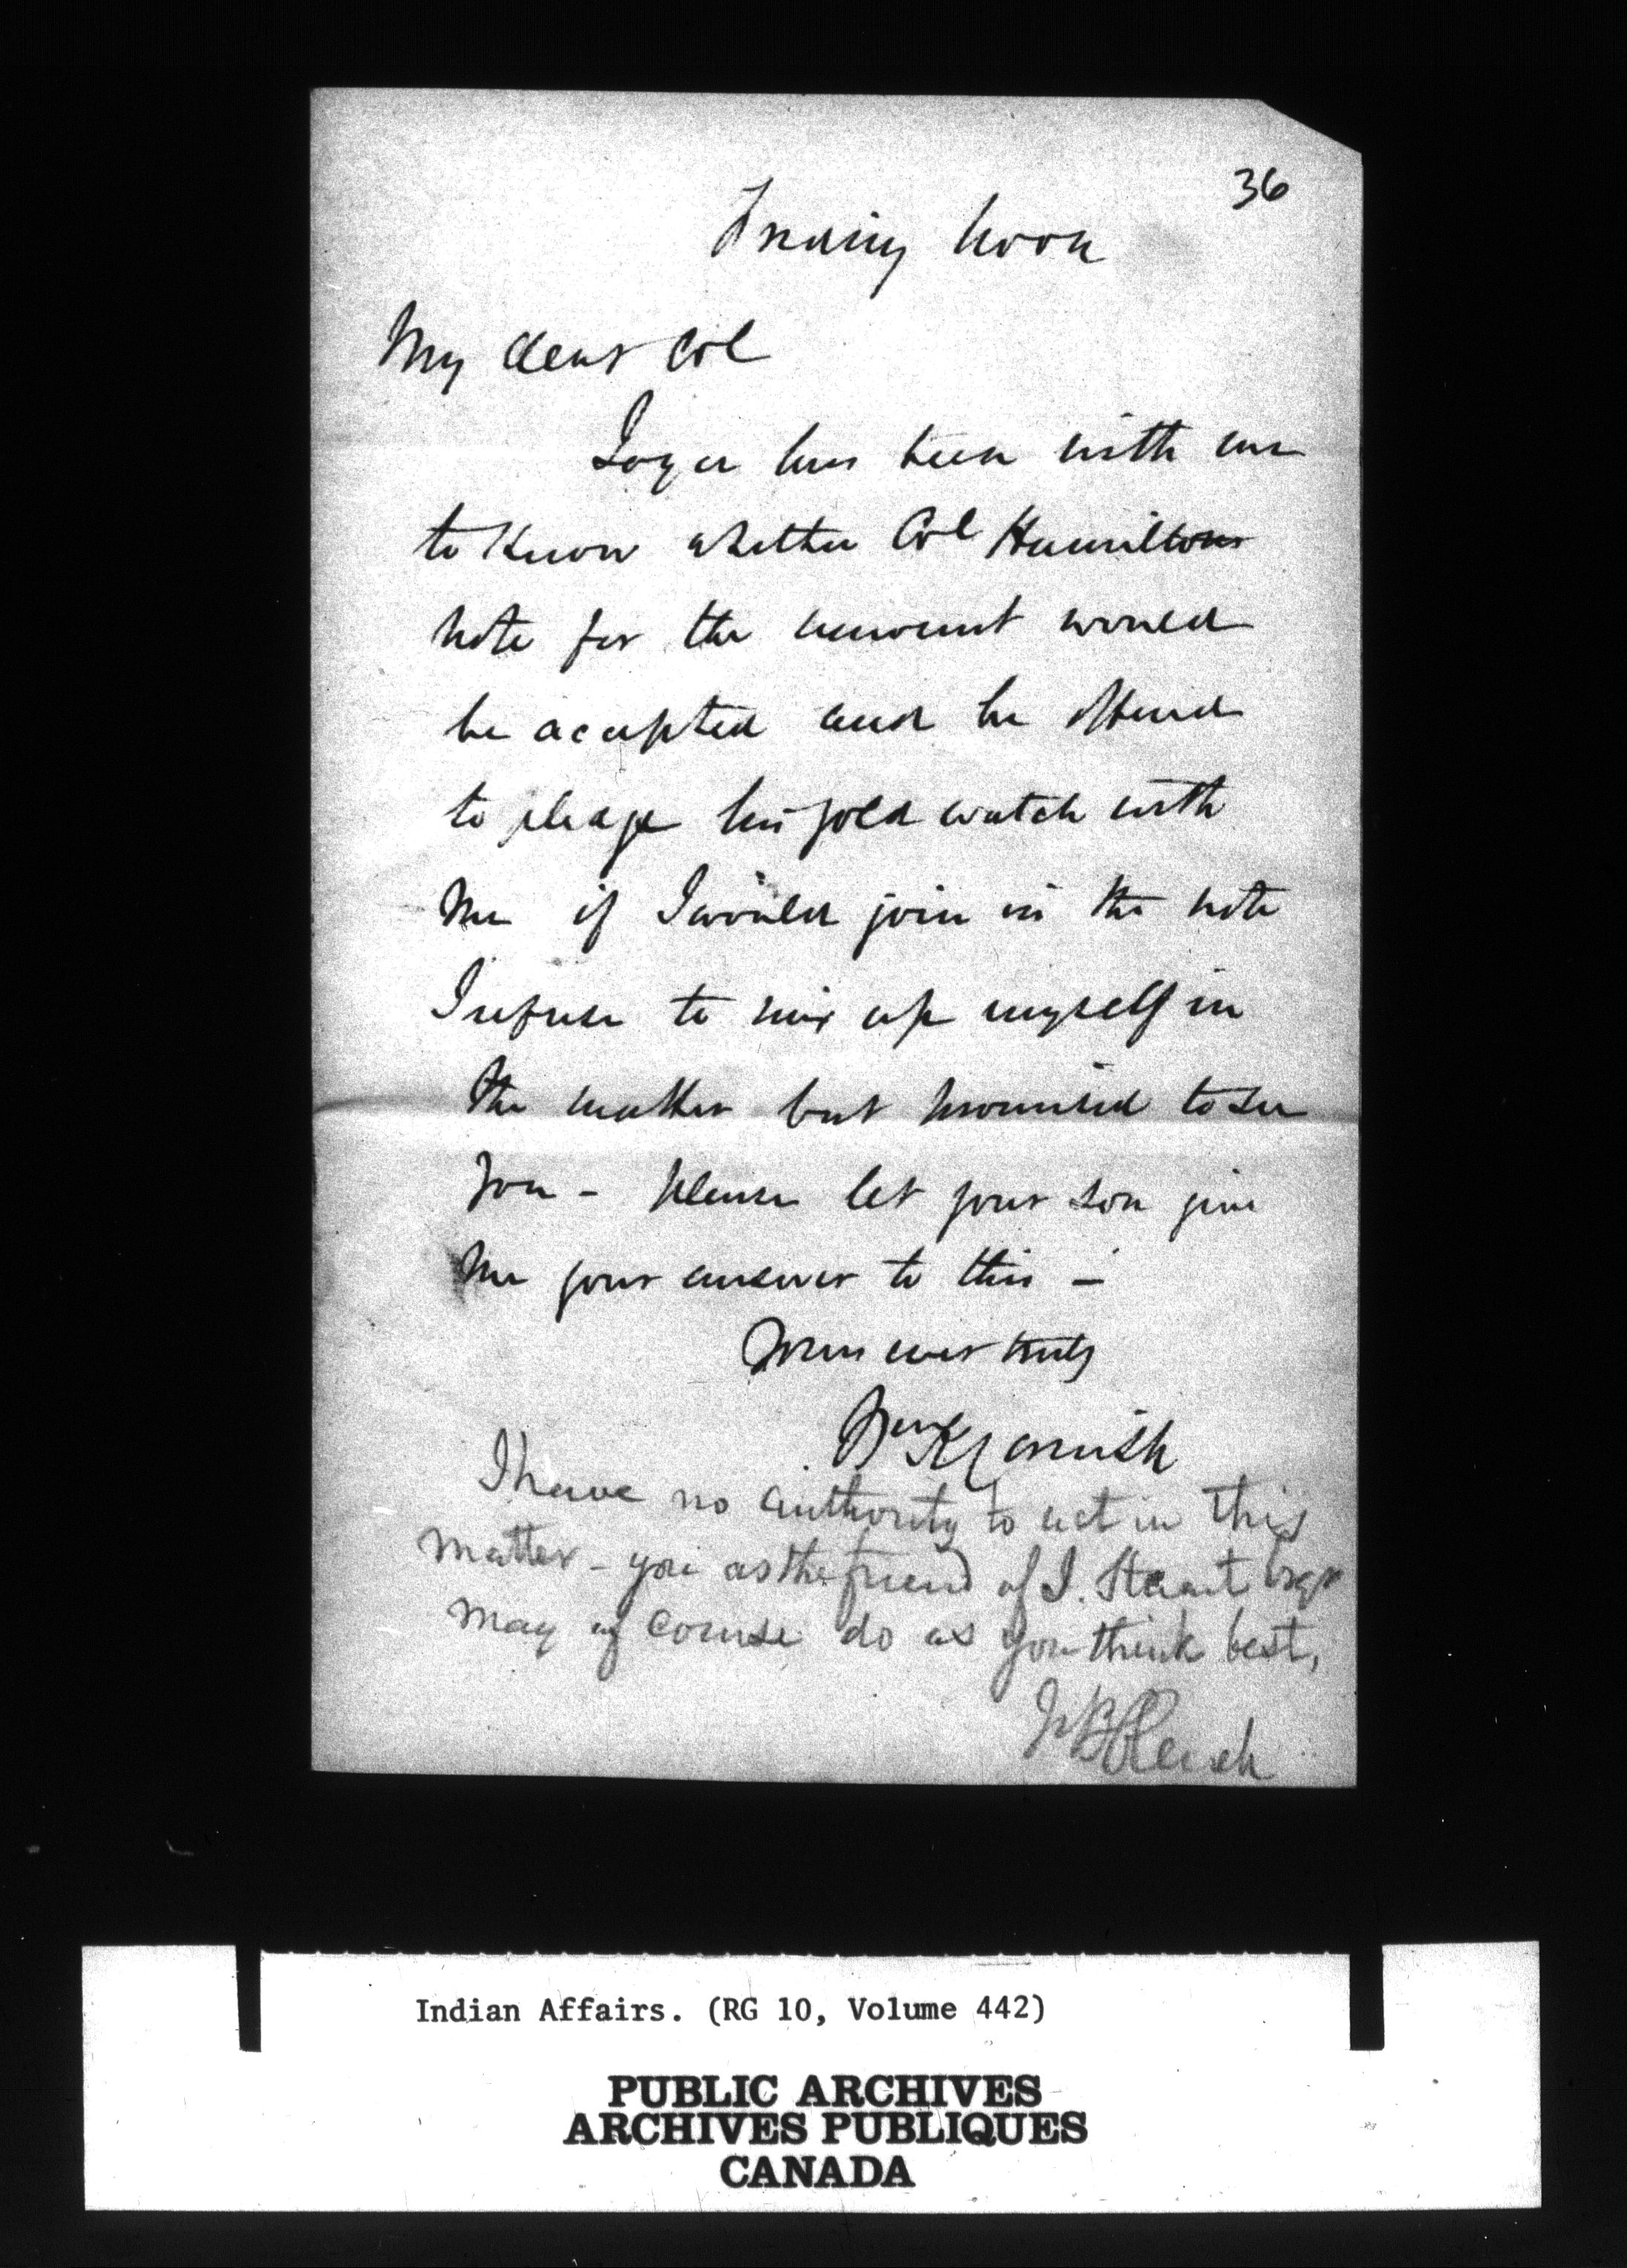 36
Friday Noon
My dear Col
has been with me
to know whether Col Hamiltons
note for the amount would
be accepted and he offered
to pledge his gold watch with
me if I would join in the note
I refuse to mix up myself in
the matter but promised to see
you - please let your son give
me your answer to this -
Yours ever truly
Wm K Cornish
I have no authority to act in this
matter - you as the friend of J. Stuart Esqr
may of course do as you think best,
JB Clench
Indian Affairs. (RG 10, Volume 442)
PUBLIC ARCHIVES
ARCHIVES PUBLIQUES
CANADA